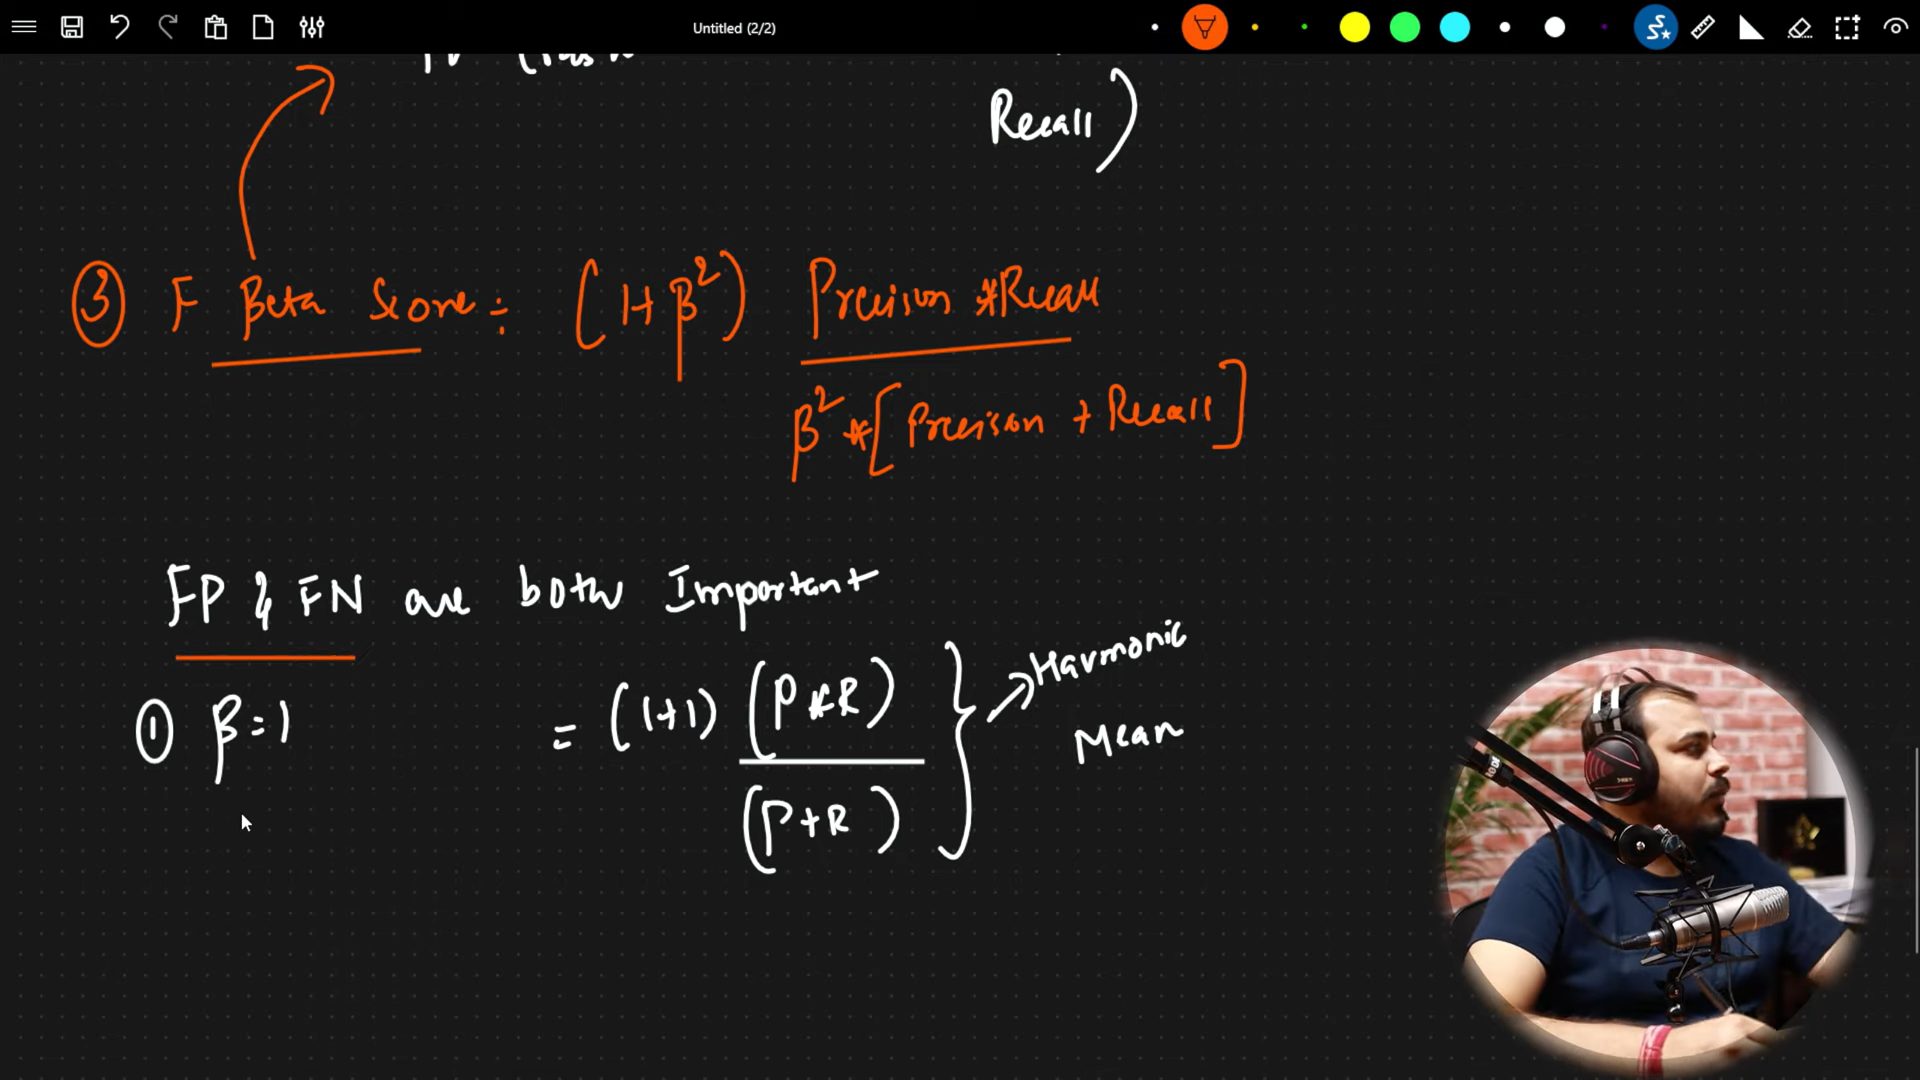 Untitled (2/2)
Recall)
③ F Beta Score ÷ (1+β²) Precison *Recall
β² *[Precison + Recall]
FP & FN are both Important
① β=1 = (1+1) (P*R) → Harmonic
(P+R) Mean